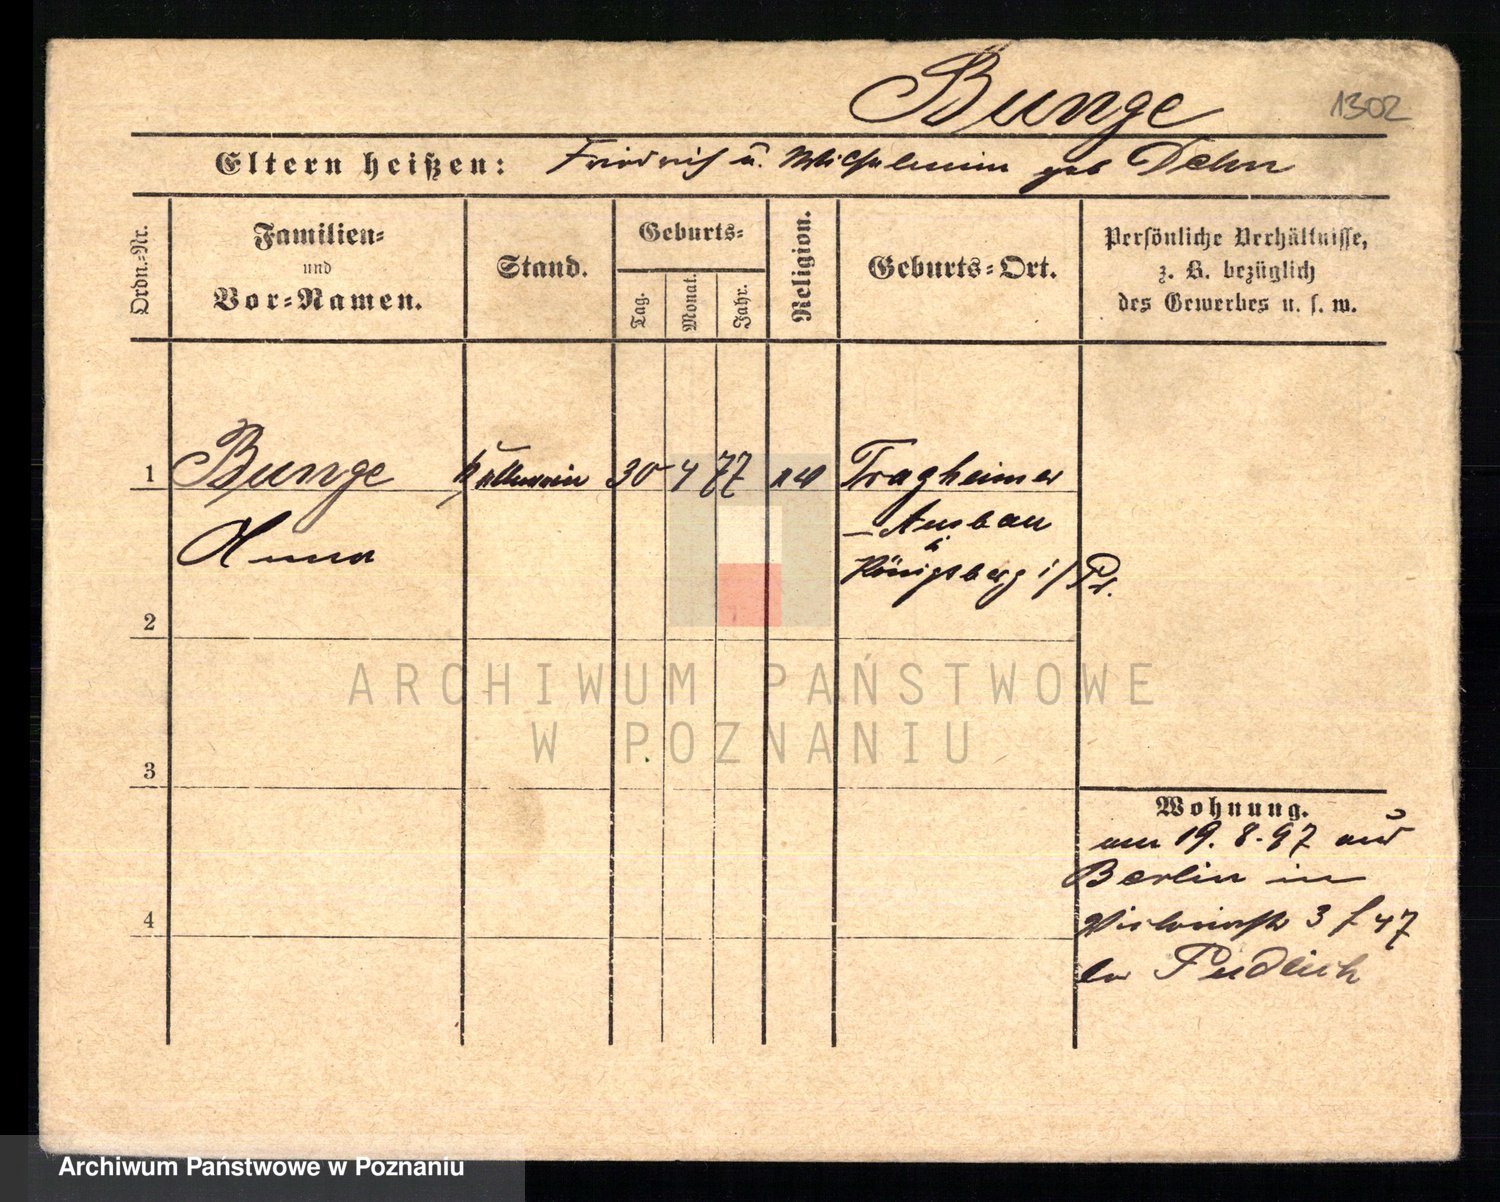 Bunge
1302
Eltern heißen: Friedrich u. Wilhelmine geb Dehn
Ordn.-Nr.
Familien-
und
Vor-Namen.
Stand.
Geburts-
Tag.
Monat.
Jahr.
Religion.
Geburts-Ort.
Persönliche Verhältnisse,
z. B. bezüglich
des Gewerbes u. s. w.
1 Bunge Kellnerin 30 4 77 ev Tragheimer
Anna
- Ausbau
b
Königsberg i/Pr.
2
3
4
ARCHIWUM PAŃSTWOWE
W POZNANIU
Wohnung.
am 19. 8. 97 aus
Berlin in
Victoriastr 3 47
Archiwum Państwowe w Poznaniu